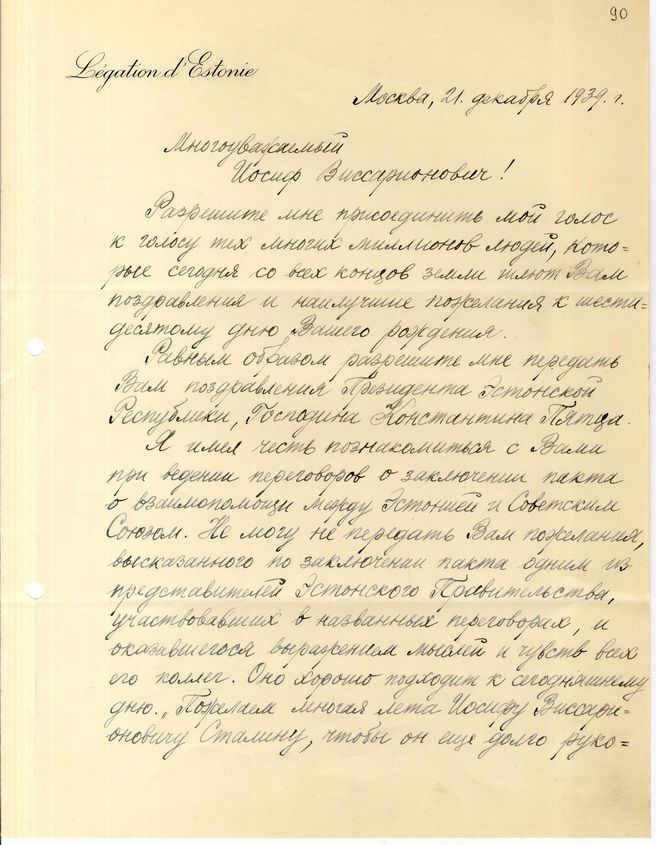 90
Légation d'Estonie
Москва, 21. декабря 1939. г.
Многоуважаемый
Иосиф Виссарионович!
Разрешите мне присоединить мой голос
к голосу тех многих миллионов людей, кото=
рые сегодня со всех концов земли шлют Вам
поздравления и наилучшие пожелания к шести=
десятому дню Вашего рождения.
Равным образом разрешите мне передать
Вам поздравления Президента Эстонской
Республики, Господина Константина Пятца.
Я имел честь познакомиться с Вами
при ведении переговоров о заключении пакта
о взаимопомощи между Эстонией и Советским
Союзом. Не могу не передать Вам пожелания,
высказанного по заключении пакта одним из
представителей Эстонского Правительства,
участвовавших в названных переговорах, и
оказавшегося выражением мыслей и чувств всех
его коллег. Оно хорошо подходит к сегодняшнему
дню. „Пожелаем многая лета Иосифу Виссари=
оновичу Сталину, чтобы он еще долго руко=